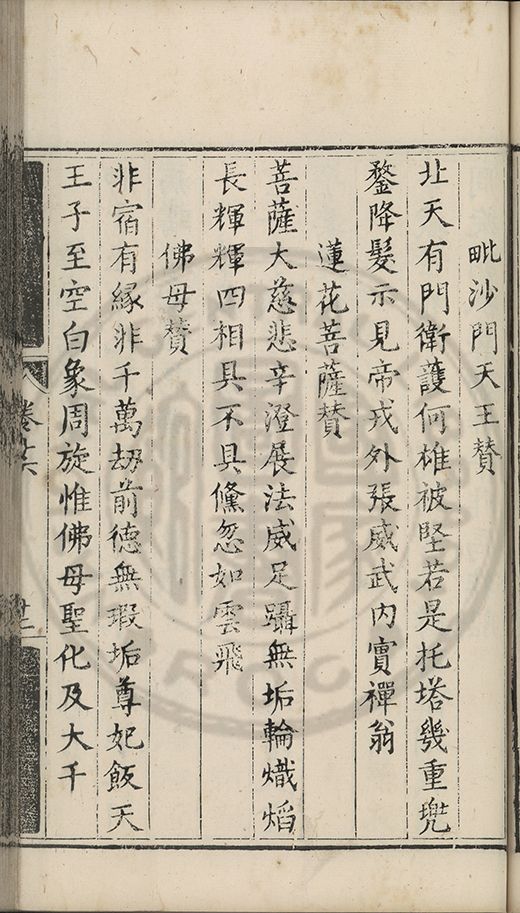 毗沙門天王賛
北天有門衛護何雄被堅若是托塔幾重兠
鍪降髮示見帝戎外張威武内實禪翁
蓮花菩薩賛
菩薩大慈悲辛澄展法威足躡無垢輪熾焰
長輝輝四相具不具儵忽如雲飛
佛母賛
非宿有緣非千萬刼前德無瑕垢尊妃飯天
王子至空白象周旋惟佛母聖化及大千
卷十六